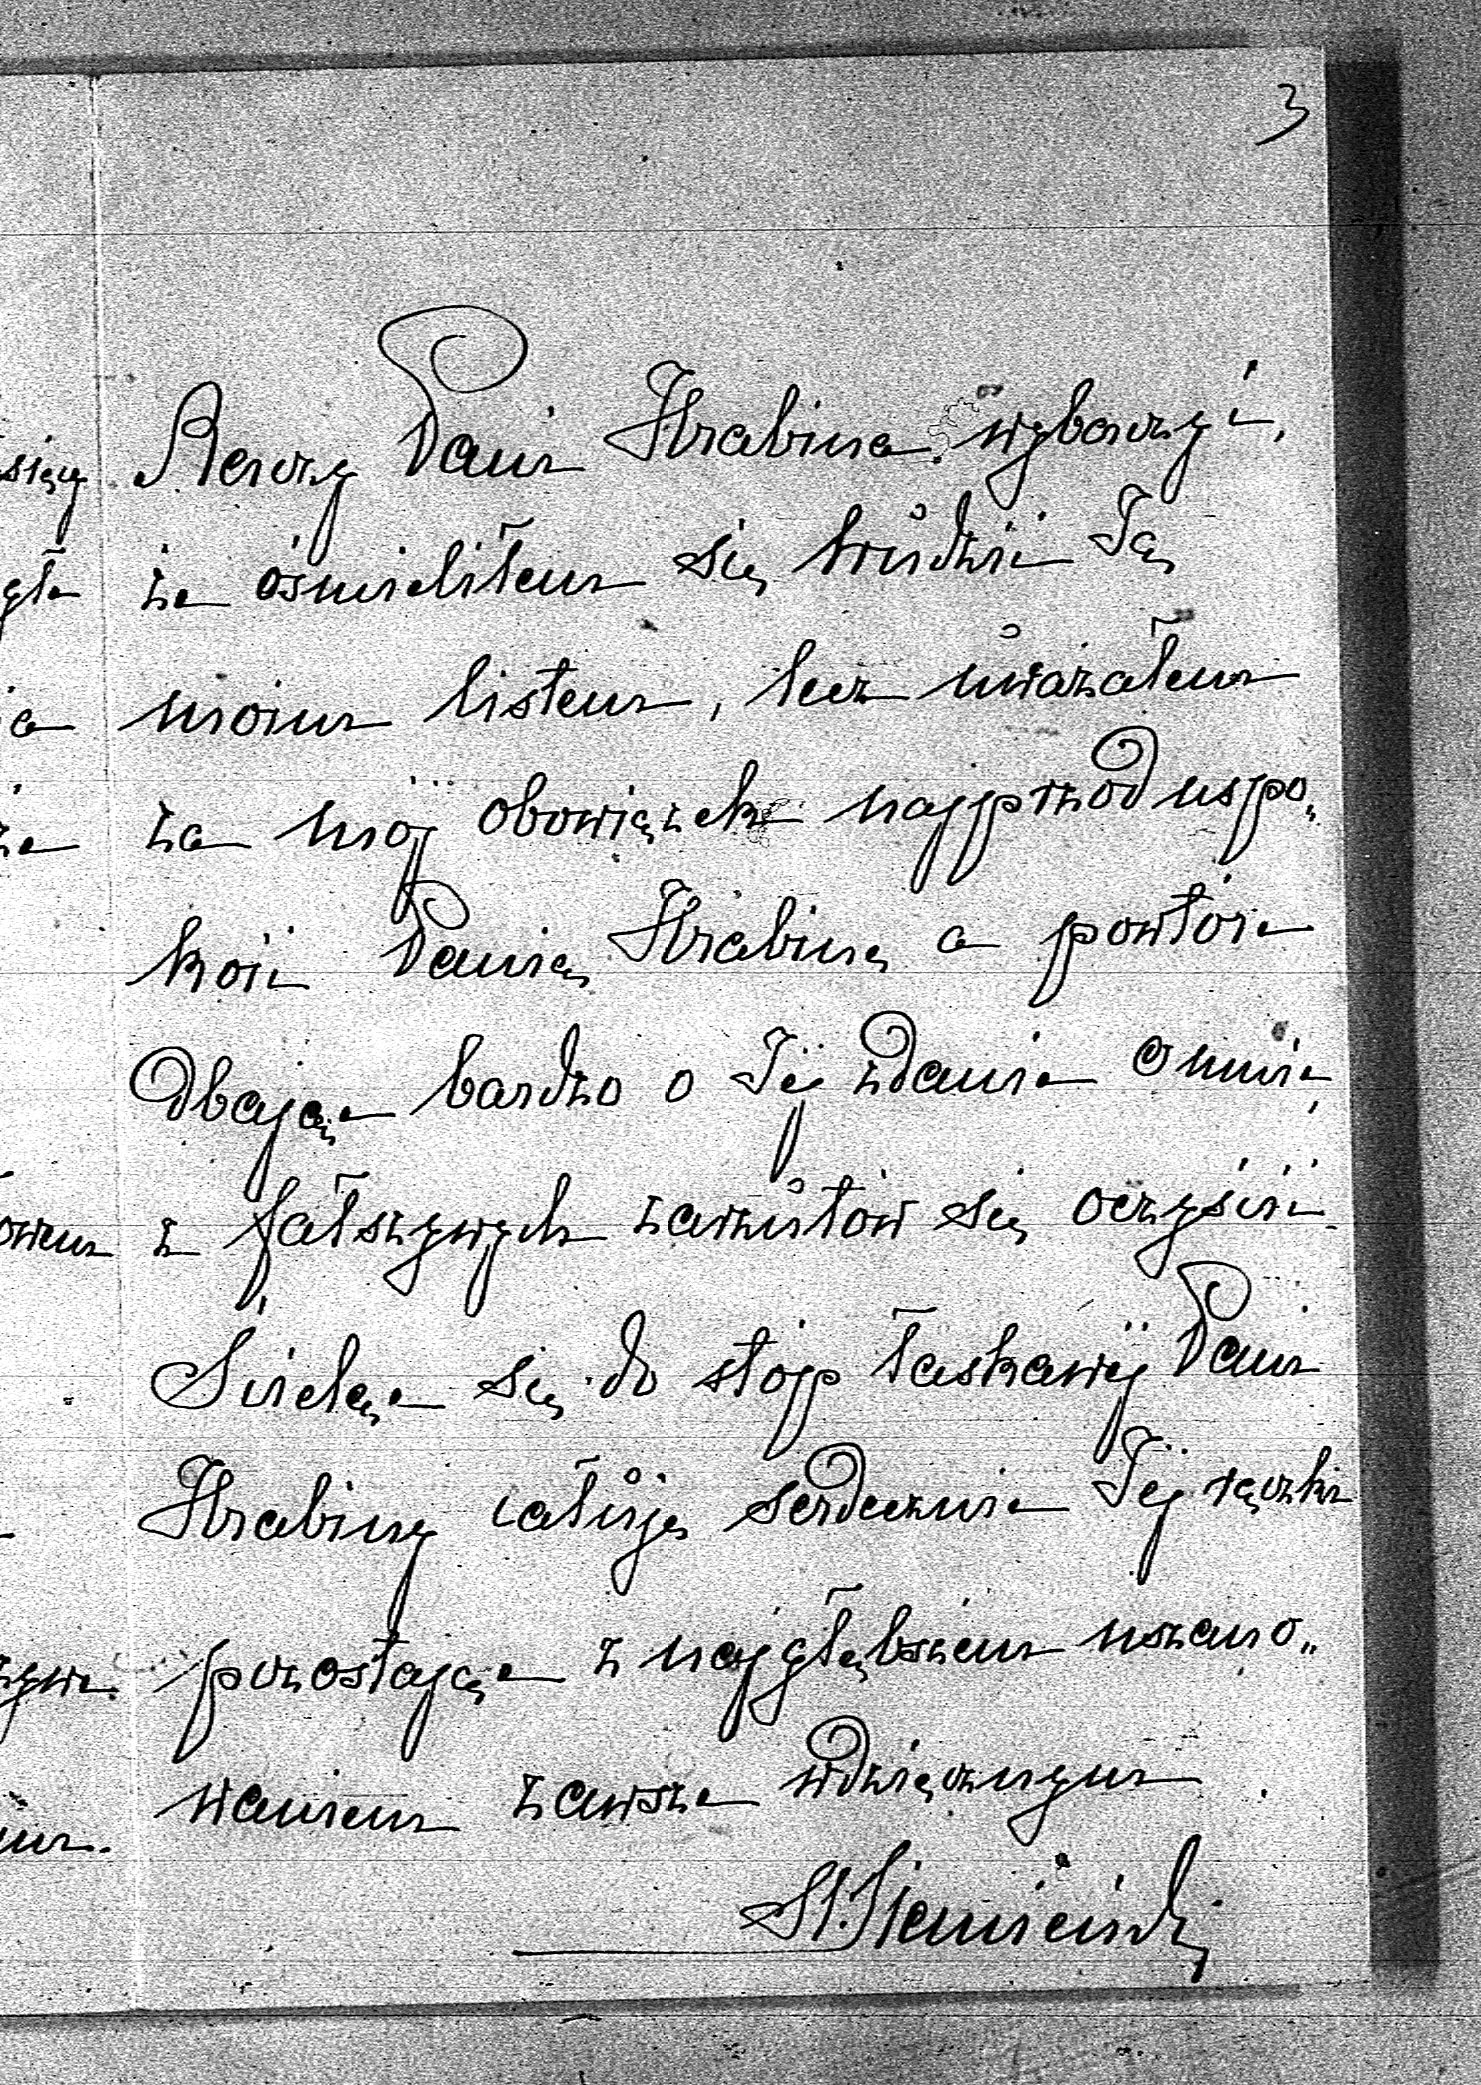 3
Raczy Pani Hrabina wybaczyć,
że ośmieliłem się trudzić Ją
moim listem, lecz uważałem
za mój obowiązek najprzód uspo„
koić Panią Hrabinę a powtóre
dbając bardzo o Jéj zdanie o mnie,
z fałszywych zarzutów się oczyścić.
Ścieląc się do stóp łaskawéj Pani
Hrabiny całuję serdecznie Jéj rączki
pozostając z najgłębszem uszano„
waniem zawsze wdzięcznym